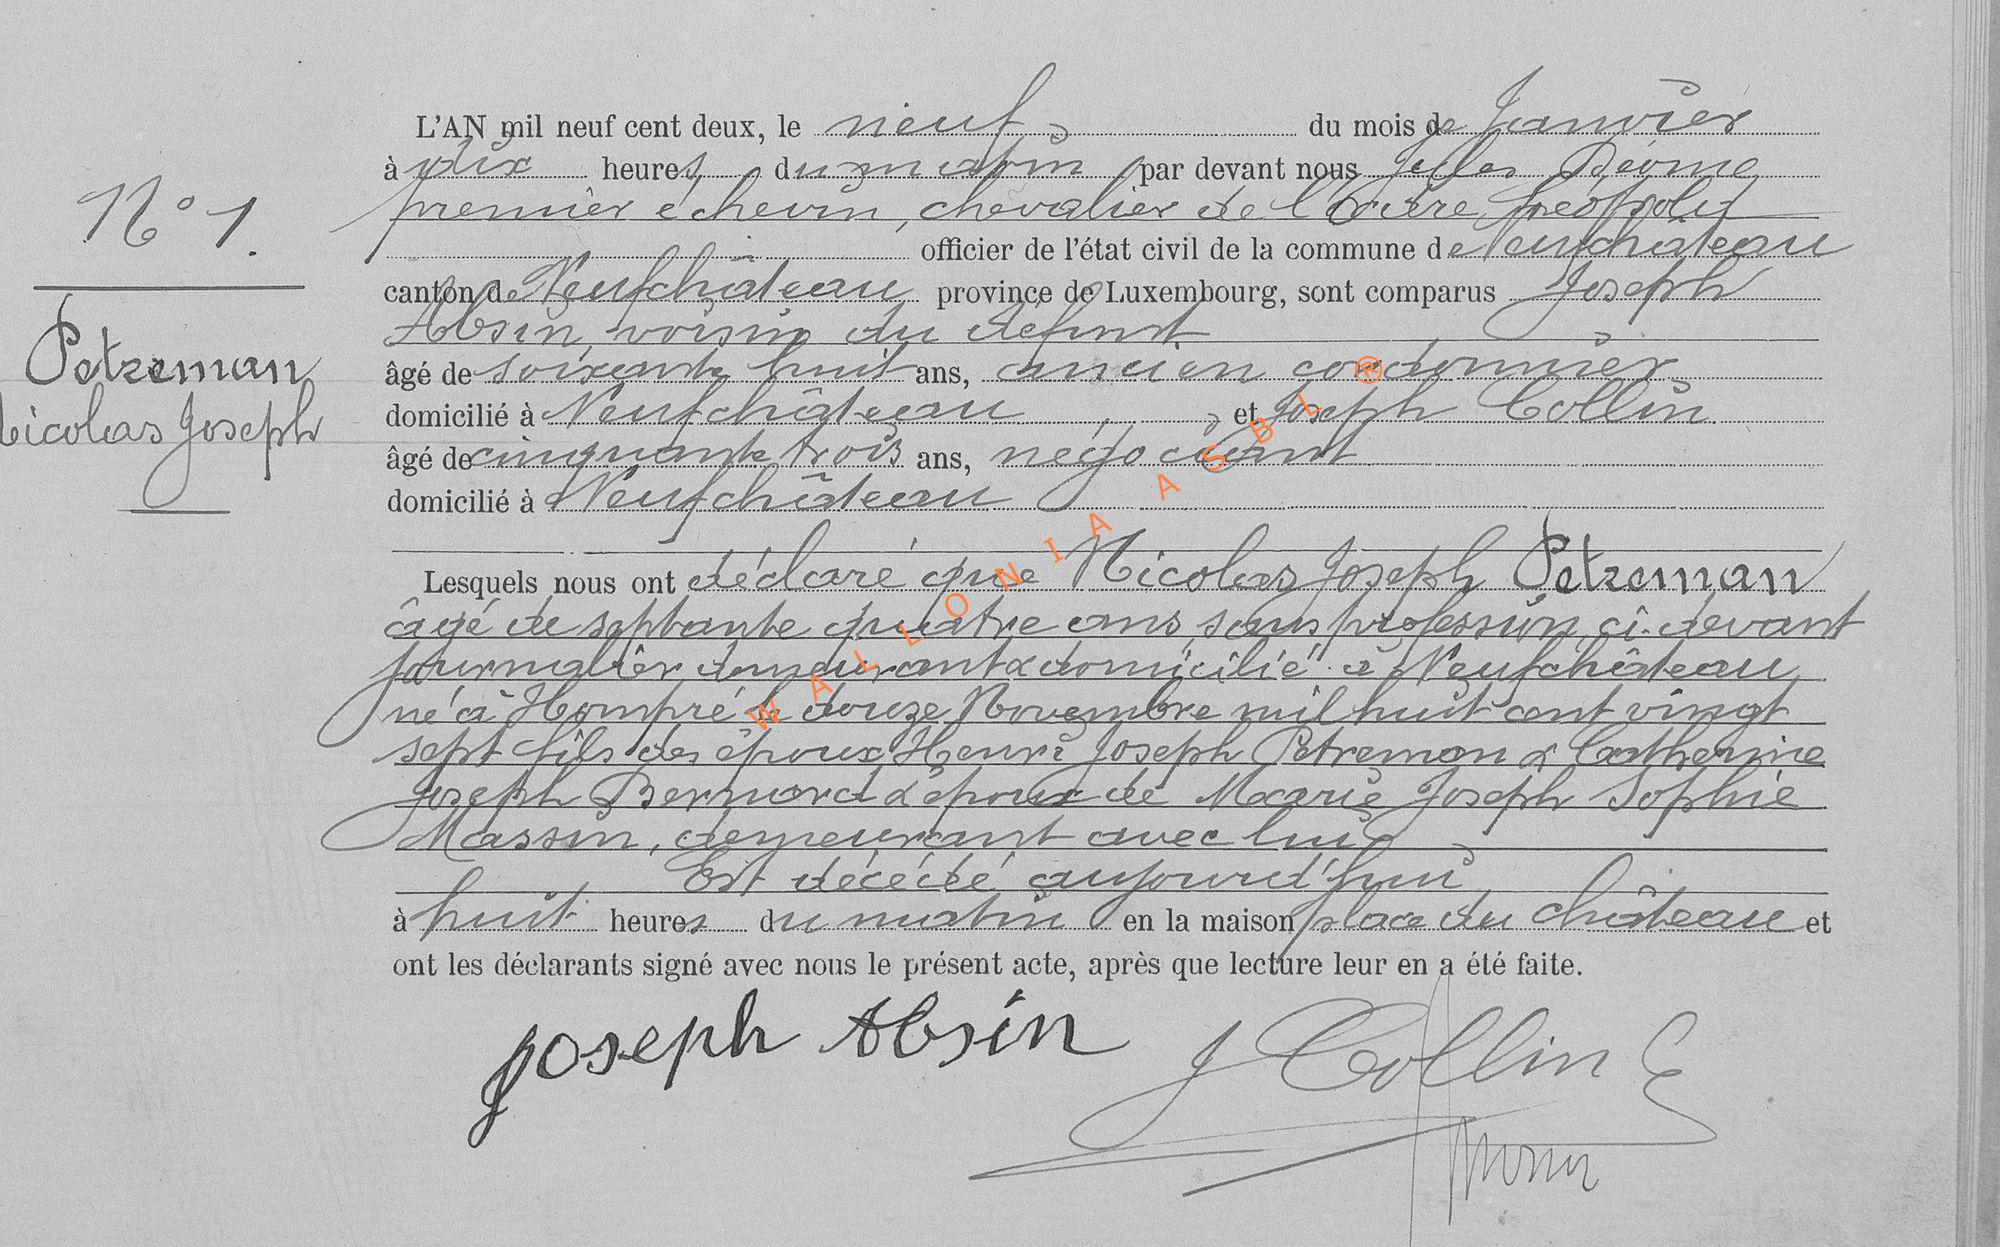 N° 1.
Petreman
Nicolas Joseph
L'AN mil neuf cent deux, le neuf du mois de Janvier
à dix heures du matin par devant nous Jules
premier échevin, chevalier de l'Ordre Léopold
officier de l'état civil de la commune de Neufchâteau
canton de Neufchâteau province de Luxembourg, sont comparus Joseph
Absin, voisin du défunt
âgé de soixante huit ans, ancien cordonnier
domicilié à Neufchâteau, et Joseph Collin
âgé de cinquante trois ans, négociant
domicilié à Neufchâteau
Lesquels nous ont déclaré que Nicolas Joseph Petreman
âgé de septante quatre ans sans profession, ci-devant
journalier, demeurant & domicilié à Neufchâteau,
né à Hompré le douze Novembre mil huit cent vingt
sept fils des époux Henri Joseph Petreman & Catherine
Joseph Bernard & époux de Marie Joseph Sophie
Massin, demeurant avec lui
Est décédé aujourd'hui
à huit heures du matin en la maison place du château et
ont les déclarants signé avec nous le présent acte, après que lecture leur en a été faite.
Joseph Absin
J Collin
WALLONIA ASBL ®